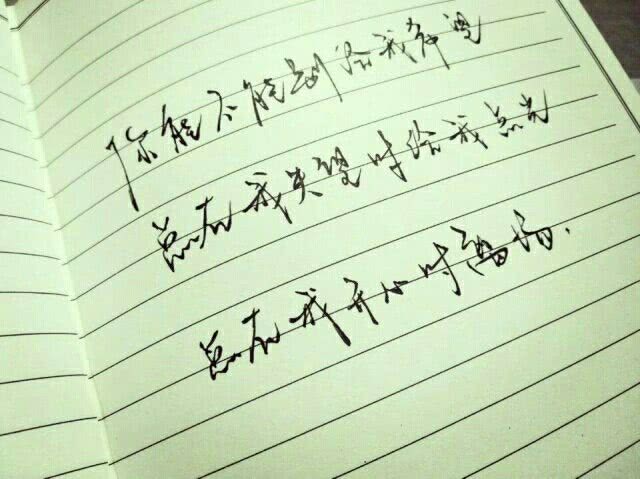 你能不能别给我希望
总在我失望时给我点光
总在我开心时离场.